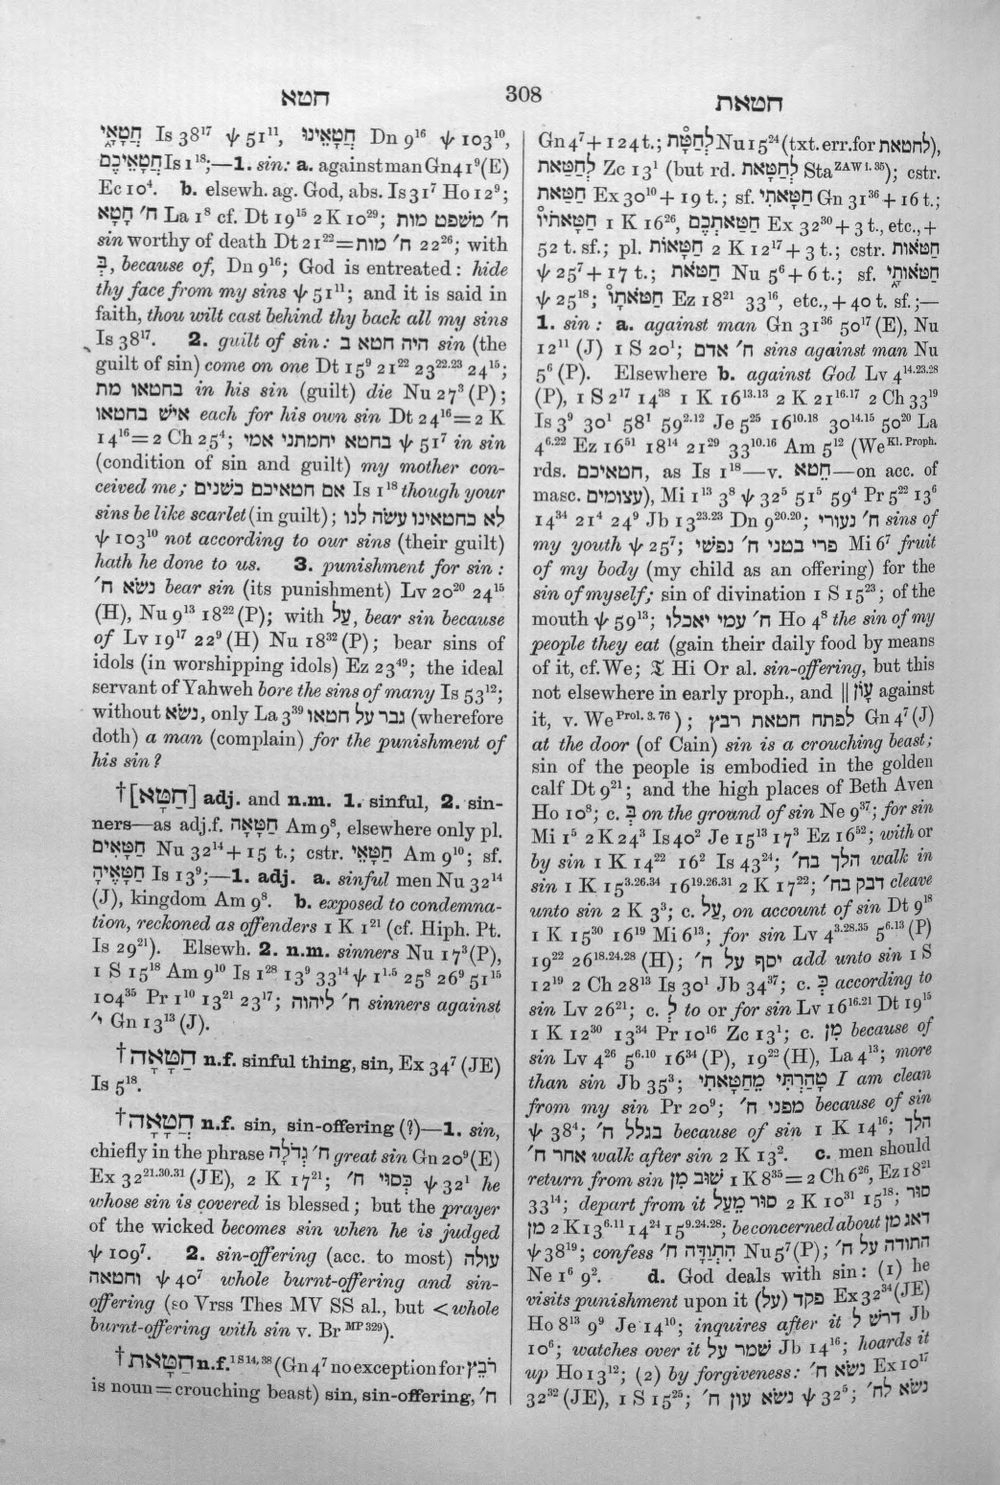 חטא
308
חטאת
חֲטָאָֽי Is 38¹⁷ ψ 51¹¹, חֲטָאֵינוּ Dn 9¹⁶ ψ 103¹⁰,
חֲטָאֵיכֶם Is 1¹⁸;—1. sin: a. against man Gn 41⁹ (E)
Ec 10⁴. b. elsewh. ag. God, abs. Is 31⁷ Ho 12⁹;
חָטָא ח׳ La 1⁸ cf. Dt 19¹⁵ 2 K 10²⁹; ח׳ משפט מות
sin worthy of death Dt 21²²=ח׳ מות 22²⁶; with
בְּ, because of, Dn 9¹⁶; God is entreated: hide
thy face from my sins ψ 51¹¹; and it is said in
faith, thou wilt cast behind thy back all my sins
Is 38¹⁷. 2. guilt of sin: היה חטא ב sin (the
guilt of sin) come on one Dt 15⁹ 21²² 23²²·²³ 24¹⁵;
בחטאו מת in his sin (guilt) die Nu 27³ (P);
איש בחטאו each for his own sin Dt 24¹⁶=2 K
14¹⁶=2 Ch 25⁴; בחטא יחמתני אמי ψ 51⁷ in sin
(condition of sin and guilt) my mother con-
ceived me; אם חטאיכם כשנים Is 1¹⁸ though your
sins be like scarlet (in guilt); לא כחטאינו עשׂה לנו
ψ 103¹⁰ not according to our sins (their guilt)
hath he done to us. 3. punishment for sin:
נשׂא ח׳ bear sin (its punishment) Lv 20²⁰ 24¹⁵
(H), Nu 9¹³ 18²² (P); with עַל, bear sin because
of Lv 19¹⁷ 22⁹ (H) Nu 18³² (P); bear sins of
idols (in worshipping idols) Ez 23⁴⁹; the ideal
servant of Yahweh bore the sins of many Is 53¹²;
without נשׂא, only La 3³⁹ גבר על חטאו (wherefore
doth) a man (complain) for the punishment of
his sin?
†[חַטָּא] adj. and n.m. 1. sinful, 2. sin-
ners—as adj.f. חַטָּאָה Am 9⁸, elsewhere only pl.
חַטָּאִים Nu 32¹⁴+15 t.; cstr. חַטָּאֵי Am 9¹⁰; sf.
חַטָּאֶיהָ Is 13⁹;—1. adj. a. sinful men Nu 32¹⁴
(J), kingdom Am 9⁸. b. exposed to condemna-
tion, reckoned as offenders 1 K 1²¹ (cf. Hiph. Pt.
Is 29²¹). Elsewh. 2. n.m. sinners Nu 17³ (P),
1 S 15¹⁸ Am 9¹⁰ Is 1²⁸ 13⁹ 33¹⁴ ψ 1¹·⁵ 25⁸ 26⁹ 51¹⁵
104³⁵ Pr 1¹⁰ 13²¹ 23¹⁷; ח׳ ליהוה sinners against
י׳ Gn 13¹³ (J).
†חַטָּאָה n.f. sinful thing, sin, Ex 34⁷ (JE)
Is 5¹⁸.
†חֲטָאָה n.f. sin, sin-offering (?)—1. sin,
chiefly in the phrase ח׳ גְדֹלָה great sin Gn 20⁹ (E)
Ex 32²¹·³⁰·³¹ (JE), 2 K 17²¹; כְּסוּי ח׳ ψ 32¹ he
whose sin is covered is blessed; but the prayer
of the wicked becomes sin when he is judged
ψ 109⁷. 2. sin-offering (acc. to most) עולה
וחטאה ψ 40⁷ whole burnt-offering and sin-
offering (so Vrss Thes MV SS al., but < whole
burnt-offering with sin v. Br ᴹᴾ ³²⁹).
†חַטָּאת n.f.¹ ˢ ¹⁴, ³⁸ (Gn 4⁷ no exception for רֹבֵץ
is noun=crouching beast) sin, sin-offering, ח׳
Gn 4⁷+124 t.; לְחַטָּ֯ת Nu 15²⁴ (txt. err. for לחטאת),
לְחַטַּאת Zc 13¹ (but rd. לְחַטָּאת Sta ᶻᴬᵂ ¹·³⁵); cstr.
חַטַּאת Ex 30¹⁰+19 t.; sf. חַטָּאתִי Gn 31³⁶+16 t.;
חַטָּאתיו֯ 1 K 16²⁶, חַטַּאתְכֶם Ex 32³⁰+3 t., etc., +
52 t. sf.; pl. חַטָּאוֹת 2 K 12¹⁷+3 t.; cstr. חַטֹּאות
ψ 25⁷+17 t.; חַטֹּאת Nu 5⁶+6 t.; sf. חַטֹּאותָֽי
ψ 25¹⁸; חַטֹּאתָו֯ Ez 18²¹ 33¹⁶, etc., +40 t. sf.;—
1. sin: a. against man Gn 31³⁶ 50¹⁷ (E), Nu
12¹¹ (J) 1 S 20¹; ח׳ אדם sins against man Nu
5⁶ (P). Elsewhere b. against God Lv 4¹⁴·²³·²⁸
(P), 1 S 2¹⁷ 14³⁸ 1 K 16¹³·¹³ 2 K 21¹⁶·¹⁷ 2 Ch 33¹⁹
Is 3⁹ 30¹ 58¹ 59²·¹² Je 5²⁵ 16¹⁰·¹⁸ 30¹⁴·¹⁵ 50²⁰ La
4⁶·²² Ez 16⁵¹ 18¹⁴ 21²⁹ 33¹⁰·¹⁶ Am 5¹² (We ᴷˡ· ᴾʳᵒᵖʰ·
rds. חטאיכם, as Is 1¹⁸—v. חֵטְא—on acc. of
masc. עצומים), Mi 1¹³ 3⁸ ψ 32⁵ 51⁵ 59⁴ Pr 5²² 13⁶
14³⁴ 21⁴ 24⁹ Jb 13²³·²³ Dn 9²⁰·²⁰; ח׳ נעורי sins of
my youth ψ 25⁷; פרי בטני ח׳ נפשי Mi 6⁷ fruit
of my body (my child as an offering) for the
sin of myself; sin of divination 1 S 15²³; of the
mouth ψ 59¹³; ח׳ עמי יאכלו Ho 4⁸ the sin of my
people they eat (gain their daily food by means
of it, cf. We; 𝔗 Hi Or al. sin-offering, but this
not elsewhere in early proph., and ‖ עָוֹן against
it, v. We ᴾʳᵒˡ· ³· ⁷⁶); לפתח חטאת רבץ Gn 4⁷ (J)
at the door (of Cain) sin is a crouching beast;
sin of the people is embodied in the golden
calf Dt 9²¹; and the high places of Beth Aven
Ho 10⁸; c. בְּ on the ground of sin Ne 9³⁷; for sin
Mi 1⁵ 2 K 24³ Is 40² Je 15¹³ 17³ Ez 16⁵²; with or
by sin 1 K 14²² 16² Is 43²⁴; הלך בח׳ walk in
sin 1 K 15³·²⁶·³⁴ 16¹⁹·²⁶·³¹ 2 K 17²²; דבק בח׳ cleave
unto sin 2 K 3³; c. עַל, on account of sin Dt 9¹⁸
1 K 15³⁰ 16¹⁹ Mi 6¹³; for sin Lv 4³·²⁸·³⁵ 5⁶·¹³ (P)
19²² 26¹⁸·²⁴·²⁸ (H); יסף על ח׳ add unto sin 1 S
12¹⁹ 2 Ch 28¹³ Is 30¹ Jb 34³⁷; c. כְּ according to
sin Lv 26²¹; c. לְ to or for sin Lv 16¹⁶·²¹ Dt 19¹⁵
1 K 12³⁰ 13³⁴ Pr 10¹⁶ Zc 13¹; c. מִן because of
sin Lv 4²⁶ 5⁶·¹⁰ 16³⁴ (P), 19²² (H), La 4¹³; more
than sin Jb 35³; טָהַרְתִּי מֵחַטָּאתִי I am clean
from my sin Pr 20⁹; מפני ח׳ because of sin
ψ 38⁴; בגלל ח׳ because of sin 1 K 14¹⁶; הלך
אחר ח׳ walk after sin 2 K 13². c. men should
return from sin שׁוּב מִן 1 K 8³⁵=2 Ch 6²⁶, Ez 18²¹
33¹⁴; depart from it סוּר מֵעַל 2 K 10³¹ 15¹⁸; סוּר
מִן 2 K 13⁶·¹¹ 14²⁴ 15⁹·²⁴·²⁸; be concerned about דאג מן
ψ 38¹⁹; confess הִתְוַדָּה ח׳ Nu 5⁷ (P); התודה על ח׳
Ne 1⁶ 9². d. God deals with sin: (1) he
visits punishment upon it פקד (על) Ex 32³⁴ (JE)
Ho 8¹³ 9⁹ Je 14¹⁰; inquires after it דרשׁ ל Jb
10⁶; watches over it שׁמר על Jb 14¹⁶; hoards it
up Ho 13¹²; (2) by forgiveness: נשׂא ח׳ Ex 10¹⁷
32³² (JE), 1 S 15²⁵; נשׂא עון ח׳ ψ 32⁵; נשׂא לח׳